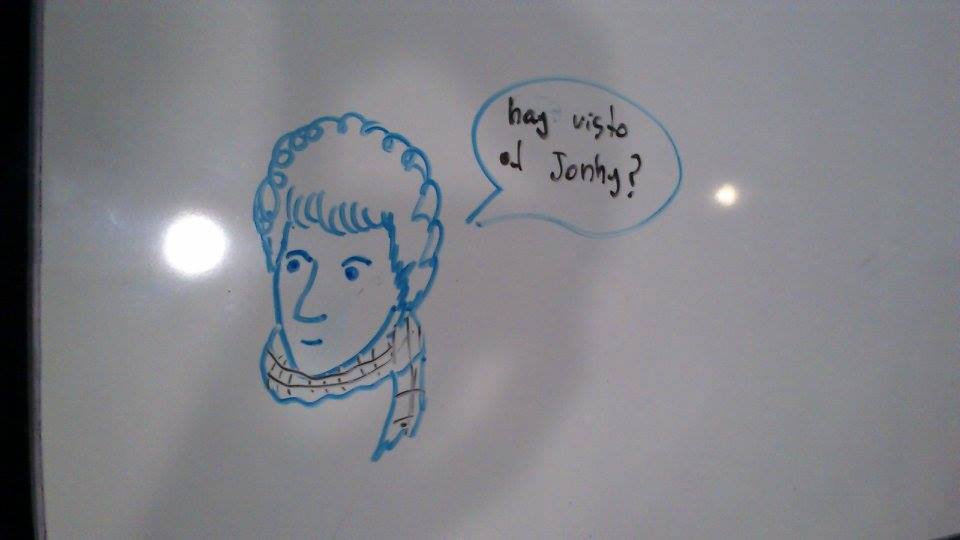 hay visto
al Jonhy?